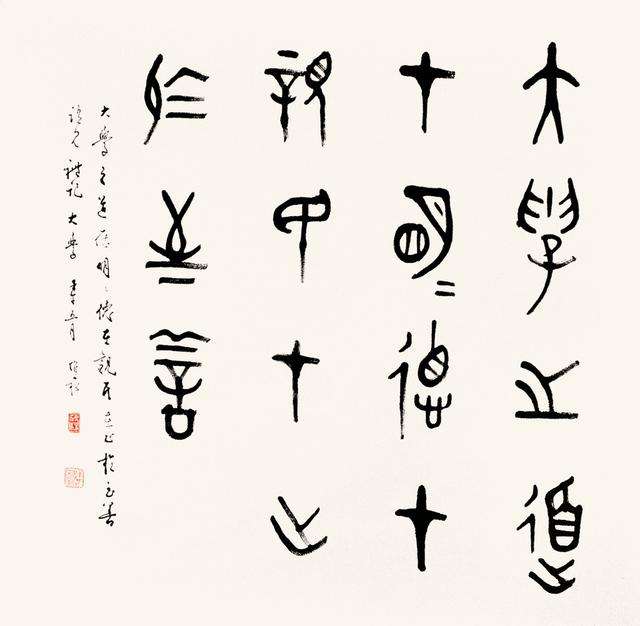 大學之道
在明=德在
親民在止
於至善
大學之道在明〻德在親民在止於至善
語見禮記大學 五月